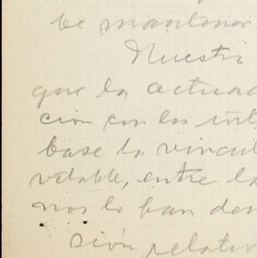 be mantener
Nuestro
que la actuac
ción con los int
base la vincul
velable, entre la
nos lo han dem
sión relativ